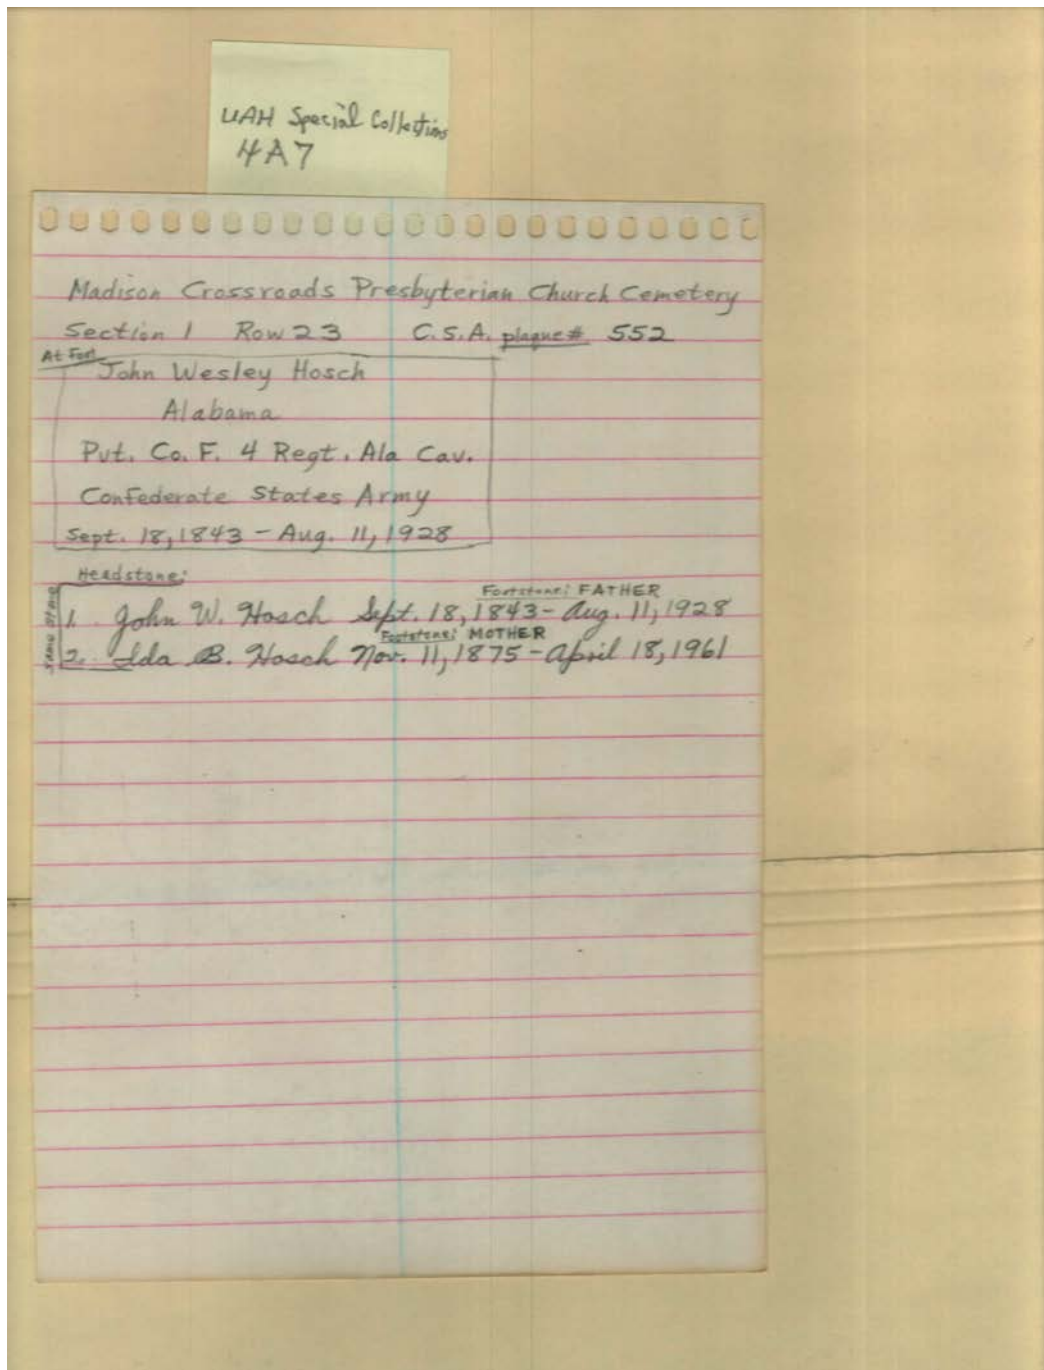 UAH Special Collections
4A7
Madison Crossroads Presbyterian Church Cemetery
Section 1 Row 23 C.S.A. plaque# 552
At Foot
John Wesley Hosch
Alabama
Pvt. Co. F. 4 Regt. Ala Cav.
Confederate States Army
Sept. 18, 1843 - Aug. 11, 1928
Headstone:
Footstone: FATHER
1. John W. Hosch Sept. 18, 1843 - Aug. 11, 1928
Footstone: MOTHER
2. Ida B. Hosch Nov. 11, 1875 - April 18, 1961
same stone